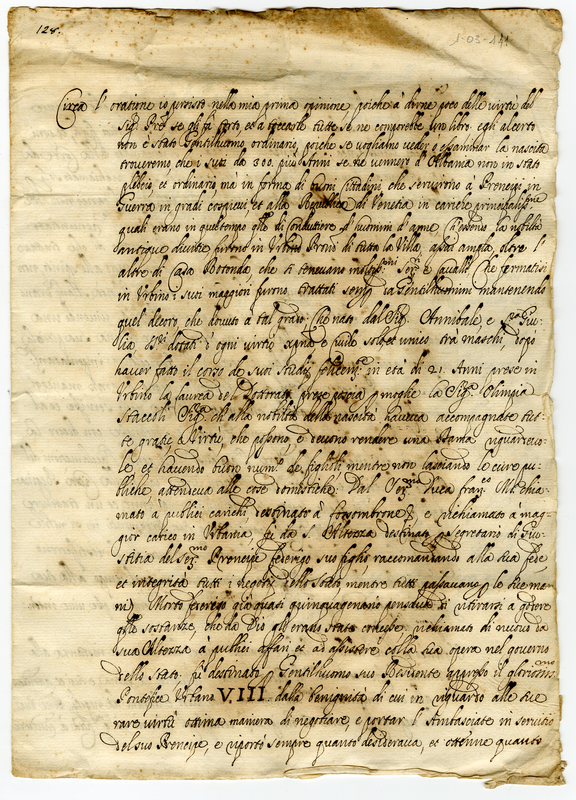 124.
1-03-141
Circa l' oratione io persisto nella mia prima opinione, poiche à dirne poco delle virtù del
Sig.r se gli fà torto, et à toccarle tutte se ne comporebbe un libro. egli al certo
non è stato Gentilhuomo ordinario, poiche se vogliamo veder, o essaminar la nascita
troveremo che i suoi da 300. più Anni se ne vennero d' Albania non in stato
plebeio, et ordinario, ma in forma di buoni Cittadini che servirono à Prencipi in
Guerra in gradi cospicui, et alla Republica di Venetia in cariche principalissime
quali erano in quel tempo di Conduttiere d' huomini d' arme
antique divitie furono in Urbino Proni di tutta la Villa, assai ampla, oltre l'
altre di Casa Botonda, che si tenevano molti Ser.i e Cavalli Che fermatisi
in Urbino i suoi maggiori furono trattati sempre da Gentilhuomini mantenendo
quel decoro, che dovuto a tal grado. Che nato dal Sig. Annibale, e
dotati d' ogni virtù xpna e civile solo et unico trà maschi, dopo
haver fatto il corso de suoi Studij felicem.te in età di 21. Anni prese in
Urbino la laurea del Dottorato, prese poscia p moglie la Sig.ra Olimpia
Staccoli ch' alla nobiltà della nascita haveva accompagnate tut-
te gratie, e Virtù, che possono, e devono rendere una Dama riguardevo-
le, et havendo buon num.o de figlioli mentre non lasciando le cure pu-
bliche, attendeva alle cose domestiche. Dal Ser.mo Duca Fran.co M.a chia-
mato a publici carichi destinato a Fossombrone, e richiamato a mag-
gior carico in Urbania, fù da S. Altezza destinato p secretario di Giu-
stitia del Ser.mo Prencipe federigo suo figlio raccomandando alla sua fede
et integrità tutti i negotij dello Stato mentre tutti passavano p le sue ma-
ni. Morto federigo già quasi quinquagenario pensava di ritirarsi a godere
q.lle sostanze, che da Dio gl' erano state concesse, richiamato di nuovo da
sua Altezza à publici affari et ad assistere colla sua opera nel governo
dello stato, fù destinato Gentilhuomo suo Residente appresso il gloriosiss.mo
Pontefice Urbano VIII. dalla benignità di cui in riguardo alle sue
rare virtù ottima maniera di negotiare, e portar l' Ambasciate in servitio
del suo Prencipe, e riportò sempre quanto desiderava, et ottenne quanto